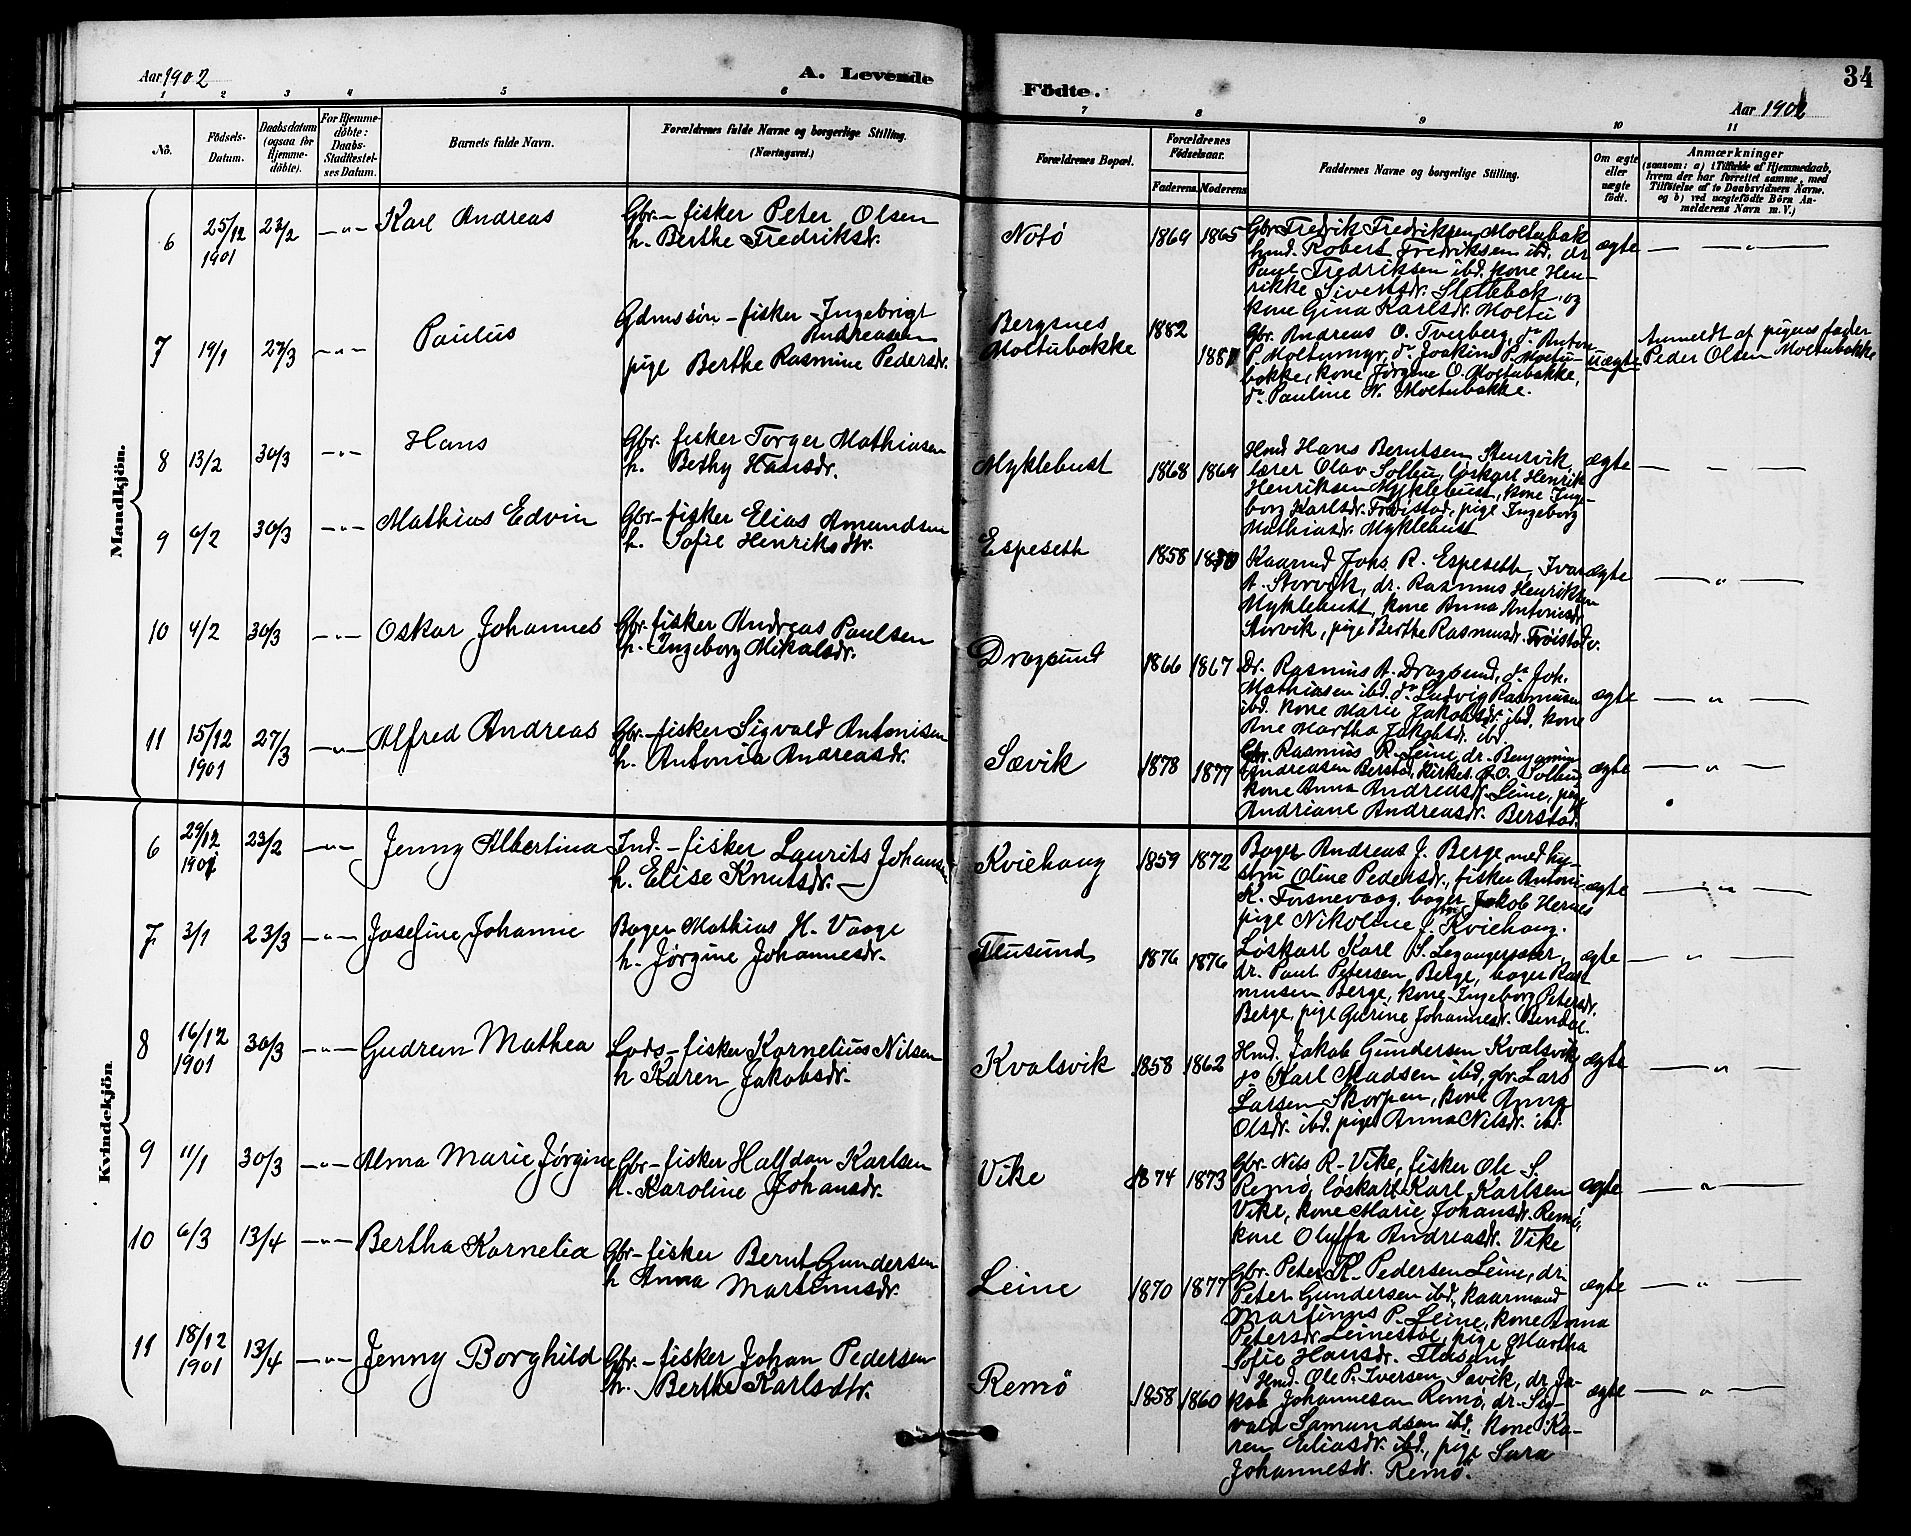 Aar 1902
A. Levende
Födte.
34
Aar 1902
1 2 3 4 5 6 7 8 9 10 11
No.
Födsels-Datum.
Daabsdatum (ogsaa for Hjemmedöbte).
For Hjemmedöbte: Daabs-Stadfæstelses Datum.
Barnets fulde Navn.
Forældrenes fulde Navne og borgerlige Stilling.
(Næringsvei.)
Forældrenes Bopæl.
Forældrenes Födselsaar.
Faderens. Moderens.
Faddernes Navne og borgerlige Stilling.
Om ægte eller uægte födt.
Anmærkninger
(saasom: a) i Tilfælde af Hjemmedaab,
hvem der har forrettet samme, med
Tilföielse af to Daabsvidners Navne.
og b) ved uægtefödte Börn Anmelderens Navn m. V.)
Mandkjön.
6 25/12 1901 23/2 —"— Karl Andreas
Gbr.-fisker Peter Olsen
h. Berthe Fredriksdr.
Notö 1869 1865
Gbr. Fredrik Fredriksen Moltubak
hmd. Robert Fredriksen ibd. dr
Paul Fredriksen ibd. kone Hen-
rikke Sivertsdr. Stettebak, og
kone Gina Karlsdr. Moltu
ægte — " —
7 19/1 27/3 —"— Paulus
Gdmssön-fisker Ingebrigt
Andreasen
pige Berthe Rasmine Pedersdr.
Bergsnes
Moltubakke
1882
1881
Gbr. Andreas O. Tverberg, do Anton
P. Moltumyr, do Joakim P. Moltu-
bakke, kone Jørgine O. Moltubakke,
do Pauline N. Moltubakke.
uægte
Anmeldt af pigens fader
Peder Olsen Moltubakke
8 13/2 30/3 —"— Hans
Gbr. fisker Torger Mathiasen
h. Bethy Hansdr.
Myklebust 1868 1869
Hmd Hans Berntsen Stenrvik,
lærer Olav Solbu, løskarl Henrik
Henriksen Myklebust, kone Inge-
borg Karlsdr. Frøistad, pige Ingeborg
Mathiasdr. Myklebust
ægte — — —
9 6/2 30/3 —"— Mathias Edvin
Gbr-fisker Elias Amundsen
h. Sofie Henriksdtr.
Espeseth 1858 1870
Kaarmd Johs R. Espeseth, Ivar
A. Storvik, dr. Rasmus Henriksen
Myklebust, kone Anna Antonsdr
Storvik, pige Berthe Rasmusdr. Frøistadv.
ægte — " —
10 4/2 30/3 —"— Oskar Johannes
Gbr-fisker Andreas Paulsen
h. Ingeborg Mikalsdr.
Dragsund 1866 1867
Dr. Rasmus A. Dragsund, do Joh.
Mathiasen ibd. do Ludvig Rasmusen
ibd. kone Marie Jakobsdr. ibd. kone
Ane Martha Jakobsdr. ibd
ægte — " —
11 15/12 1901 27/3 —"— Alfred Andreas
Gbr-fisker Sigvald Antonisen
h. Antonia Andreasdr.
Sævik 1878 1877
Gbr. Rasmus R. Leine, dr. Benjamin
Andreasen Berstad, kirkes. P. O. Solbu
kone Anna Andreasdr. Leine, pige
Andriane Andreasdr. Berstad.
ægte — " —
Kvindekjön
6 29/12 1901 23/2 —"— Jenny Albertina
Ind.-fisker Laurits Johansen
h. Elise Knutsdr.
Kviehaug 1859 1872
Bager Andreas J. Berge med hu-
stru Oline Pedersdr., fisker Antoni
K. Torsnevaag, bager Jakob Hernes
pige Nikoline J. Kviehaug.
ægte — " —
7 3/1 23/3 —"— Josefine Johanne
Bager Mathias H. Vaage
h. Jørgine Johannesdr.
Flusund 1876 1876
Løskarl Karl S. Leganger,
dr. Paul Petersen Berge, bager Ras-
musen Berge, kone Ingeborg Petersdr.
Berge, pige Gurine Johannesdr. Bendal.
ægte — " —
8 16/12 1901 30/3 —"— Gudrun Mathea
Lods-fisker Kornelius Nilsen
h Karen Jakobsdr.
Kvalsvik 1858 1862
Hmd. Jakob Gundersen Kvalsvik,
do Karl Madsen ibd, gbr. Lars
Larsen Skorpen, kone Anna
Olsdr. ibd. pige Anna Nilsdr. ibd.
ægte — " —
9 11/1 30/3 —"— Alma Marie Jørgine
Gbr-fisker Halfdan Karlsen
h. Karoline Johansdr.
Vike 1874 1873
Gbr. Nils R. Vike, fisker Ole S.
Remø, løskarl Karl Karlsen
Vike, kone Marie Johansdr. Remø,
kone Oluffa Andreasdr. Vike
ægte — " —
10 6/3 13/4 —"— Bertha Kornelia
Gbr-fisker Bernt Gundersen
h Anna Martinusdr.
Leine 1870 1877
Gbr. Peter K. Pedersen Leine, dr.
Peter Gundersen ibd., kaarmand
Martinus P. Leine, kone Anna
Petersdr. Leinestøl, pige Martha
Sofie Hansdr. Flusund
ægte — " —
11 18/12 1901 13/4 —"— Jenny Borghild
Gbr.-fisker Johan Pedersen
h. Berthe Karlsdtr.
Remø 1858 1860
Hmd. Ole P. Iversen Savik, dr. Ja-
kob Johannesen Remø, dr. Sig-
vald Samundsen ibd. kone Ka-
ren Eliasdr. ibd., pige Sara
Johannesdr. Remø.
ægte — " —